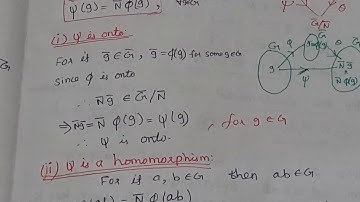 ψ(g) = N̄ φ(g), ∀g∈G
(i) ψ is onto
For if ḡ ∈ Ḡ, ḡ = φ(g) for some g∈G
since φ is onto
∴ N̄ḡ ∈ Ḡ/N̄
⇒ N̄ḡ = N̄ φ(g) = ψ(g), for g∈G
∴ ψ is onto.
(ii) ψ is a homomorphism:
For if a, b ∈ G then ab∈G
= N̄ φ(ab)
G φ Ḡ θ
g ḡ=φ(g) N̄ḡ
ψ